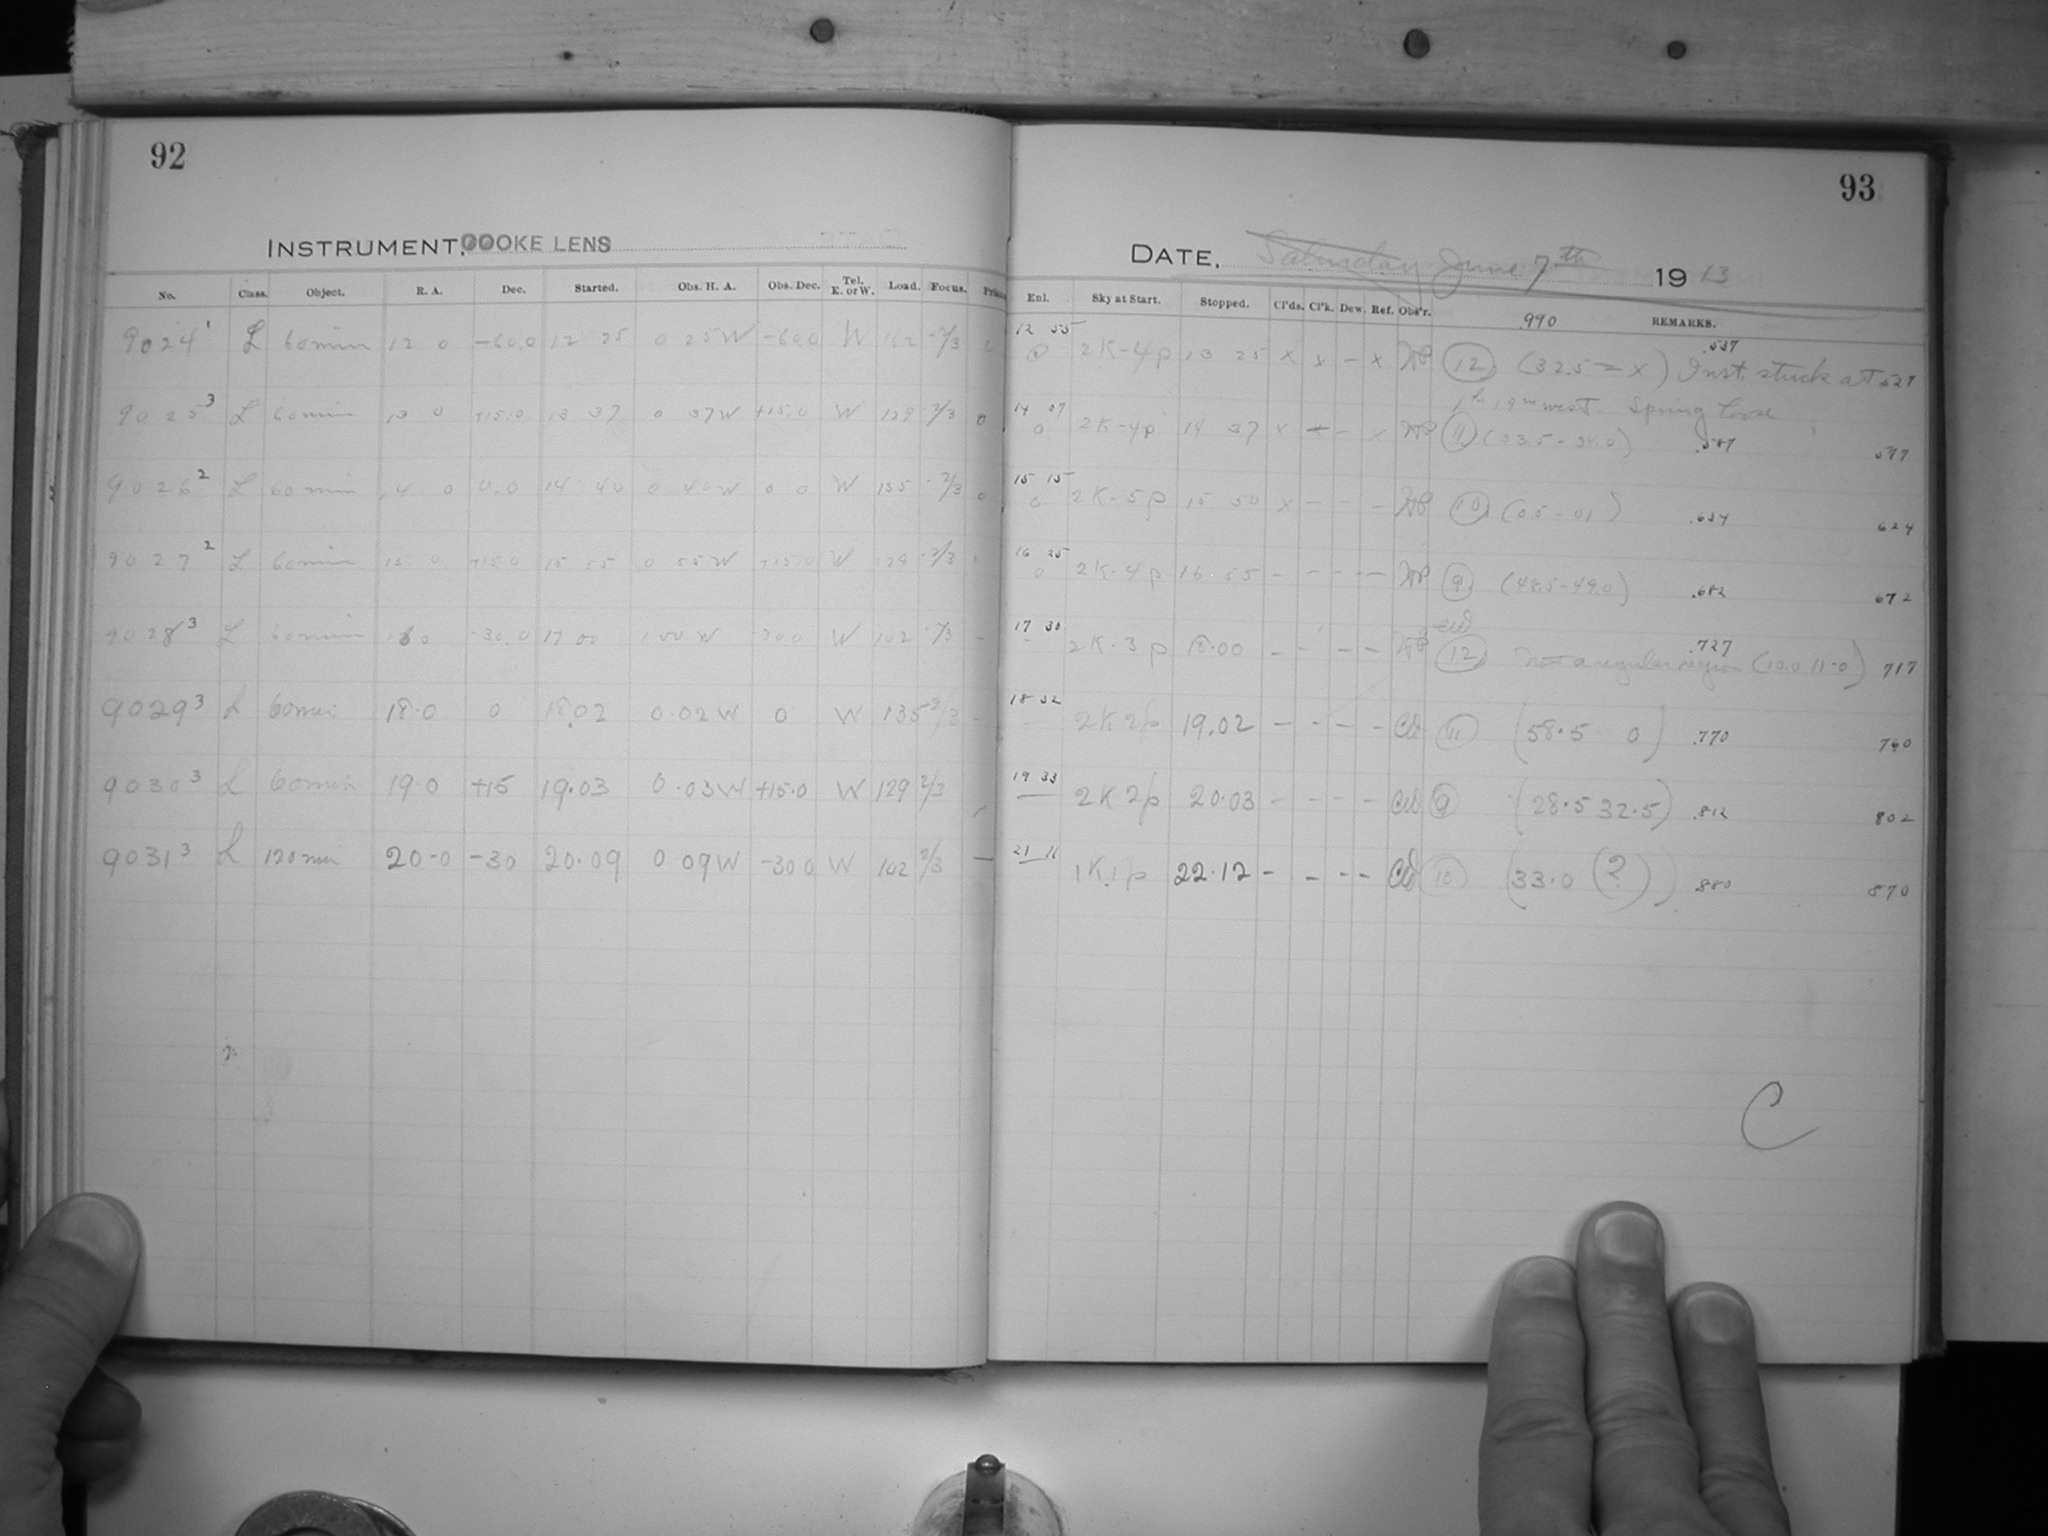 92
INSTRUMENT, COOKE LENS
No. Class. Object. R. A. Dec. Started. Obs. H. A. Obs. Dec. Tel. E. or W. Load. Focus.
9024 1 L 60 min 12 0 -60.0 12 25 0 25 W -60.0 W 162 -2/3 0
9025 3 L 60 min 13 0 +15.0 13 37 0 37 W +15.0 W 129 -2/3 0
9026 2 L 60 min 14 0 0.0 14 40 0 40 W 0 0 W 135 -2/3 0
9027 2 L 60 min 15 0 +15.0 15 55 0 55 W +15.0 W 129 -2/3
9028 3 L 60 min 16 0 -30.0 17 00 1 00 W -30.0 W 142 -2/3 -
9029 3 L 60 min 18.0 0 18.02 0.02 W 0 W 135 -2/3 -
9030 3 L 60 min 19.0 +15 19.03 0.03 W +15.0 W 129 2/3
9031 3 L 120 min 20.0 -30 20.09 0 09 W -30 0 W 142 2/3 -
93
DATE, Saturday June 7th 1913
Enl. Sky at Start. Stopped. Cl'ds. Cl'k. Dew. Ref. Obs'r. .990 REMARKS.
12 55 2K-4p 13 25 x x - x 12 (32.5 - x) Inst. stuck at .537 527
1h 19m west. Spring loose
14 07 0 2K-4p 14 37 x x - x 11 (33.5-34.0) .587 577
15 15 0 2K-5p 15 50 x - - - 10 (05-01) .634 624
16 25 0 2K-4p 16 55 - - - - 9 (48.5-49.0) .682 672
17 30 - 2K-3p 18.00 - - - - 12 Not a regular region (10.0 11.0) .727 717
18 32 2K2p 19.02 - - - - 11 (58.5 0) .770 760
19 33 2K2p 20.03 - - - - 9 (28.5 32.5) .812 802
21 11 1K1p 22.12 - - - - 10 (33.0 (?)) .880 870
C